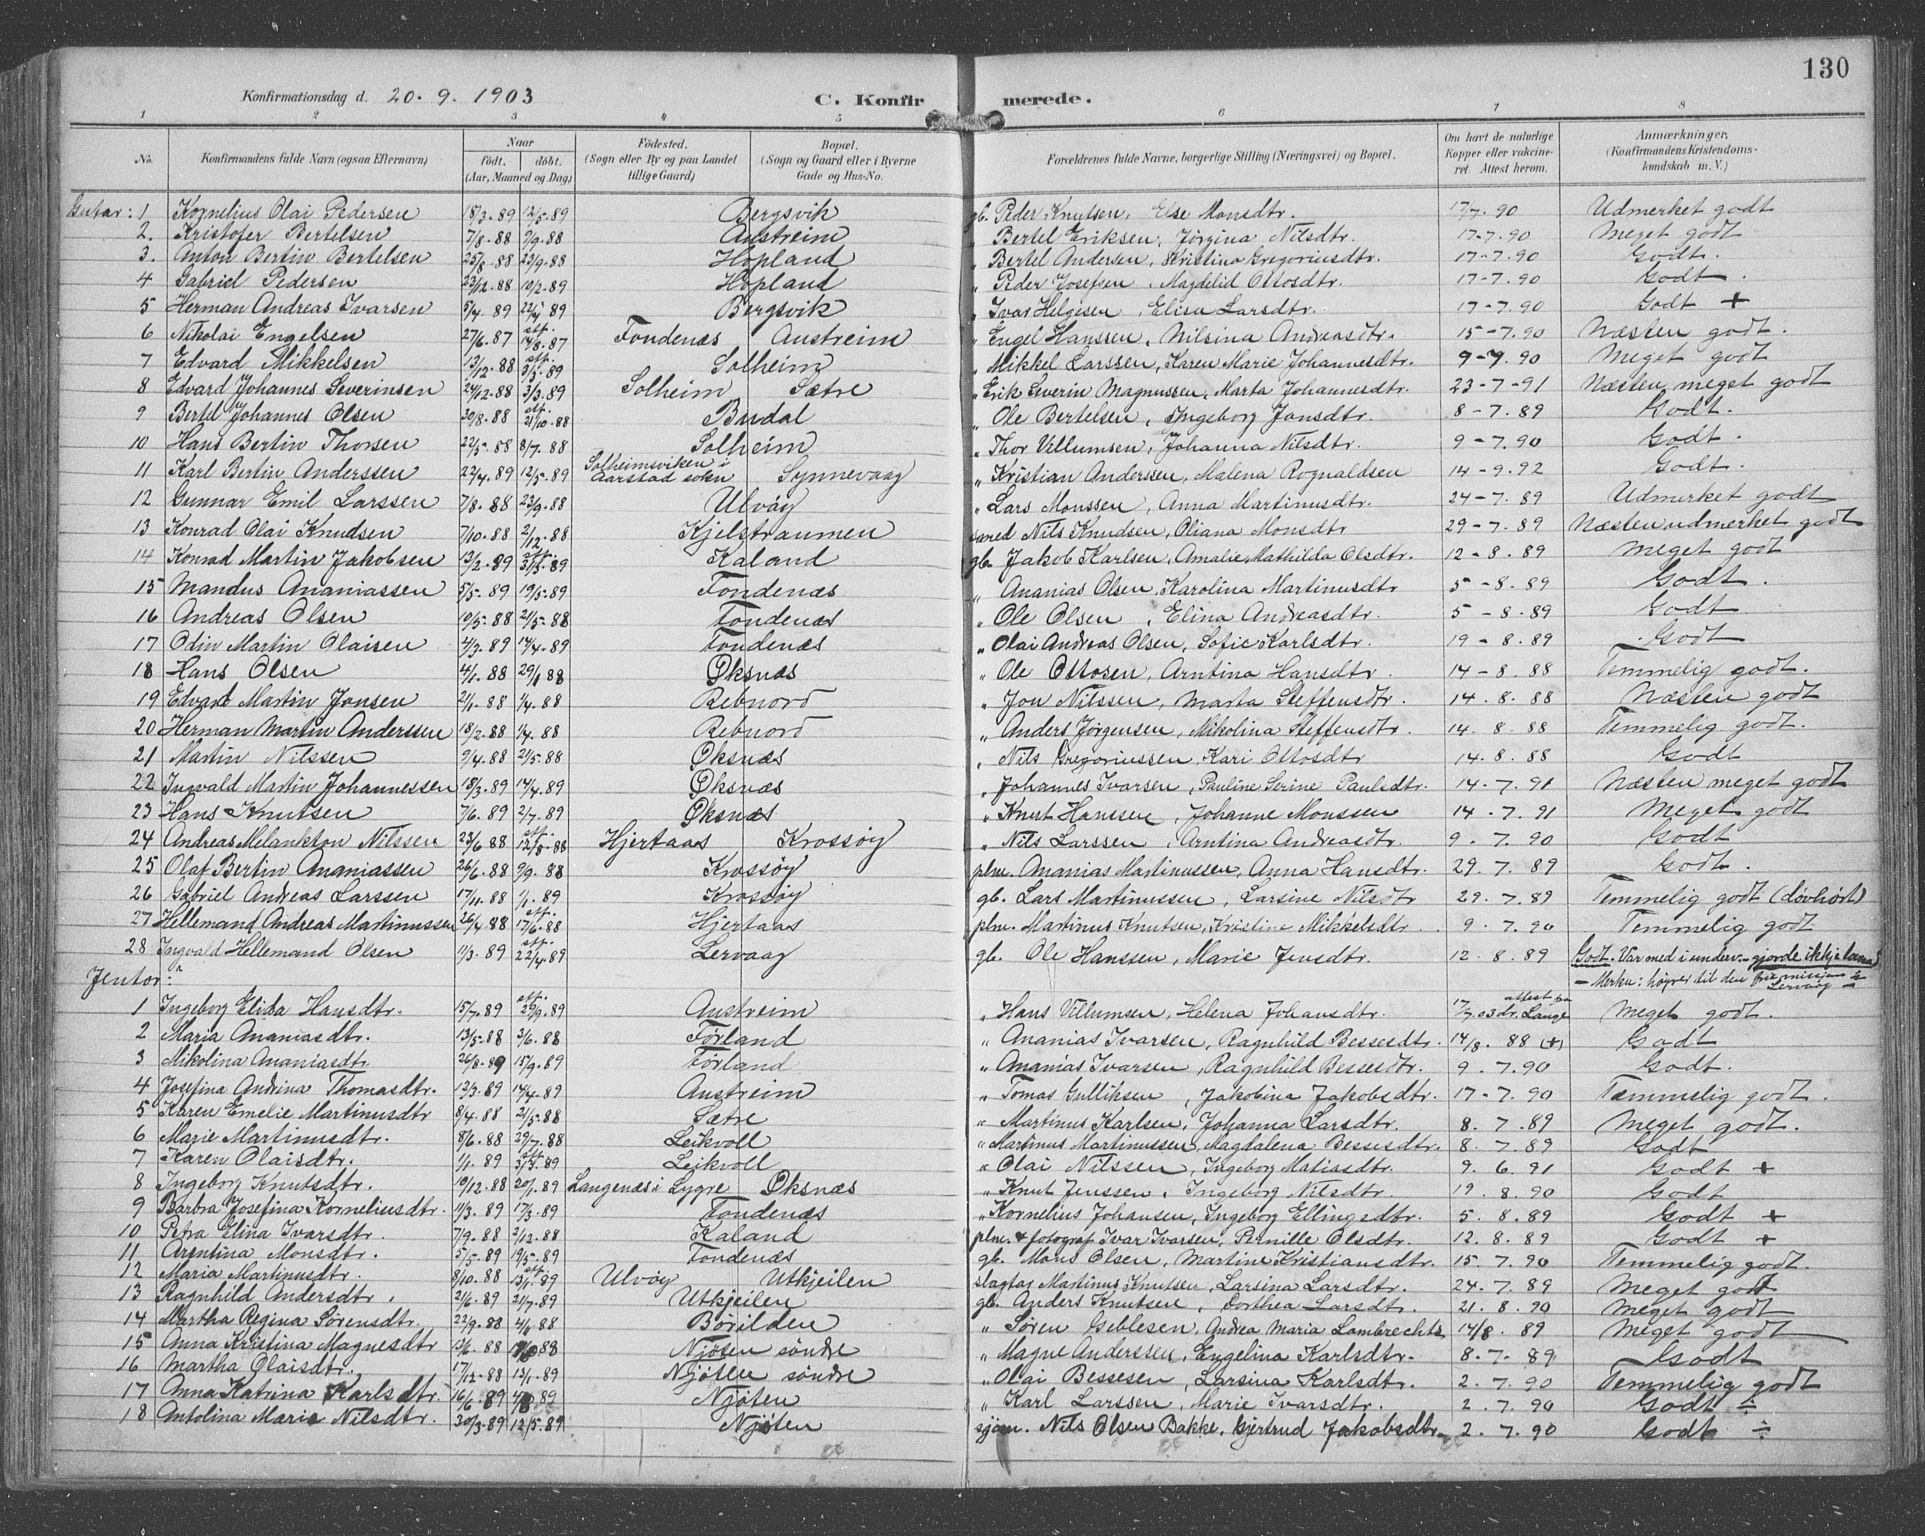 130
Konfirmationsdag d. 20. 9. 1903 C. Konfirmerede.
1 2 3 4 5 6 7 8
No. Konfirmandens fulde Navn (ogsaa Efternavn) Naar født. døbt. (Aar, Maaned og Dag) Fødested. (Sogn eller By og paa Landet tillige Gaard) Bopæl. (Sogn og Gaard eller i Byerne Gade og Hus-No. Forældrenes fulde Navne, borgerlige Stilling (Næringsvei) og Bopæl. Om havt de naturlige Kopper eller vakcineret. Attest herom. Anmærkninger, (Konfirmandens Kristendomskundskab m. V.)
Gutar: 1 Kornelius Olai Pedersen 18/3. 89 12/5. 89 Bergsvik gb. Peder Knutsen, Else Monsdtr. 17/7. 90 Udmerket godt
2. Kristofer Bertelsen 7/8. 88 9/9. 88 Austreim " Bertel Eriksen, Jørgina Nilsdtr. 17-7. 90 Meget godt
3. Anton Bertin Bertelsen 25/8. 88 23/9. 88 Hopland " Bertel Andersen, Kristina Gregoriusdtr. 17-7. 90 Godt.
4 Gabriel Pedersen 22/12. 88 10/2. 89 Hopland " Peder Josefsen, Magdelid Ottosdtr. 17-7. 90 Godt.
5 Herman Andreas Ivarsen 5/4. 89 22/4 89 Bergsvik " Ivar Helgesen, Elisa Larsdtr. 17-7. 90 Godt +
6 Nikolai Engelsen 27/6. 87 stf. 14/8. 87 Fondenæs Austreim " Engel Hanssen, Nilsina Andreasdtr. 15-7. 90 Næsten godt.
7 Edvard Mikkelsen 13/12. 88 stf. 3/3. 89 Solheim " Mikkel Larssen, Karen Marie Johannesdtr. 9-7. 90 Meget godt
8 Edvard Johannes Severinsen 24/12. 88 3/3. 89 Solheim Sætre " Erik Severin Magnussen, Marta Johannesdtr. 23-7-91 Næsten meget godt
9 Bertel Johannes Olsen 30/8. 88 stf. 21/10. 88 Budal " Ole Bertelsen, Ingeborg Jonsdtr. 8-7. 89 Godt.
10 Hans Bertin Thorsen 22/5. 88 8/7. 88 Solheim " Thor Villumsen, Johanna Nilsdtr. 9-7. 90 Godt.
11 Karl Bertin Anderssen 22/4. 89 12/5. 89 Solheimsviken i Aarstad sokn Synnevaag " Kristian Andersen, Malena Rognaldsen 14-9. 92 Godt.
12 Gunnar Emil Larssen 7/8. 88 23/9. 88 Ulvøy " Lars Monssen, Anna Martinusdtr. 24-7. 89 Udmerket godt
13 Konrad Olai Knudsen 7/10. 88 2/12. 88 Kjelstraumen smed Nils Knudsen, Oliana Monsdtr. 29-7. 89 Næsten udmerket godt
14 Konrad Martin Jakobsen 13/2. 89 stf. 31/3. 89 Kaland gb. Jakob Karlsen, Amalie Mathilda Olsdtr. 12-8. 89 Meget godt
15 Mandus Ananiassen 5/5. 89 19/5. 89 Fondenæs " Ananias Olsen, Karolina Martinusdtr 5-8. 89 Godt.
16 Andreas Olsen 10/5. 88 21/5. 88 Fondenæs " Ole Olsen, Elina Andreasdtr. 5-8. 89 Godt
17 Odin Martin Olaisen 4/3. 89 14/4. 89 Fondenæs " Olai Andreas Olsen, Sofie Karlsdtr. 19-8. 89 Godt
18 Hans Olsen 4/1. 88 29/1 88 Øksnæs " Ole Ottosen, Arntina Hansdtr. 14-8. 88 Temmelig godt.
19 Edvard Martin Jonsen 2/1. 88 1/4. 88 Rebnord " Jon Nilssen, Marta Steffensdtr. 14. 8. 88 Næsten godt
20 Herman Martin Anderssen 18/2. 88 1/4. 88 Rebnord " Anders Jørgensen, Mikolina Steffensdtr. 14. 8. 88 Temmelig godt.
21 Martin Nilssen 9/4. 88 21/5. 88 Øksnæs " Nils Gregoriussen, Kari Ottosdtr 14. 8. 88 Godt
22 Ingvald Martin Johannessen 18/3. 89 14/4. 89 Øksnæs " Johannes Ivarsen, Pauline Serine Paulsdtr. 14-7. 91 Næsten meget godt
23 Hans Knutsen 7/6. 89 2/7. 89 Øksnæs " Knut Hanssen, Johanne Monssen 14-7. 91 Meget godt
24 Andreas Melankton Nilssen 23/6 88 stf. 12/8. 88 Hjertaas Krossøy " Nils Larssen, Arntina Andreasdtr. 9. 7. 90 Godt
25 Olaf Bertin Ananiassen 26/6. 88 9/9. 88 Krossøy plm. Ananias Martinussen, Anna Hansdtr. 29. 7. 89 Godt.
26 Gabriel Andreas Larssen 17/11. 88 1/1. 89 Krossøy gb. Lars Martinussen, Larsine Nilsdtr 29. 7. 89 Temmelig godt (døvhørt)
27 Hellemand Andreas Martinussen 26/4. 88 stf. 17/6. 88 Hjertaas plm. Martinus Knutsen, Kristine Mikkelsdtr. 9. 7. 90 Temmelig godt
28 Ingvald Hellemand Olsen 11/3. 89 stf. 22/4. 89 Lervaag gb. Ole Hanssen, Marie Jensdtr. 12. 8. 89 Godt. Var med i underv. – gjorde ikkje lovna
– Merkn: høyrer til den frie missjon i Lervaag =
Jentor:
1 Ingeborg Elida Hansdtr. 15/7. 89 stf. 29/9. 89 Austreim " Hans Villumsen, Helena Johansdtr. 17/7. 03 attest fra dr. Lange Meget godt.
2 Maria Ananiasdtr. 13/5. 88 3/6. 88 Førland " Ananias Ivarsen, Ragnhild Bessesdtr. 14/8. 88 (+) Godt
3 Mikolina Ananiasdtr. 26/8. 89 15/9. 89 Førland " Ananias Ivarsen, Ragnhild Bessesdtr. 9. 7. 90 Godt.
4 Josefina Andrina Thomasdtr. 12/3. 89 14/4. 89 Austreim " Tomas Gulliksen, Jakobina Jakobsdtr. 17-7. 90 Temmelig godt.
5 Karen Emelie Martinusdtr 8/4. 88 21/5. 88 Sætre " Martinus Karlsen, Johanna Larsdtr. 8. 7. 89 Meget godt.
6 Marie Martinusdtr. 8/6. 88 29/7. 88 Leikvoll " Martinus Martinussen, Magdalena Bessesdtr. 8. 7. 89 Godt
7 Karen Olaisdtr. 1/1. 89 stf. 31/3. 89 Leikvoll " Olai Nilssen, Ingeborg Matisdtr. 9. 6. 91 Godt +
8 Ingeborg Knutsdtr. 10/12. 88 20/1. 89 Langenæs i Lygre Øksnæs " Knut Jenssen, Ingeborg Nilsdtr. 19. 8. 90 Godt
9 Barbra Josefina Kornelius dtr. 11/3. 89 17/3. 89 Fondenæs " Kornelius Johansen, Ingeborg Ellingsdtr. 5. 8. 89 Godt +
10 Petra Elina Ivarsdtr. 7/9. 88 2/12. 88 Kaland plm. + fotograf Ivar Ivarsen, Pernille Olsdtr. 12. 8. 89 Godt +
11 Arentina Monsdtr. 5/5. 89 19/5. 89 Fondenæs gb. Mons Olsen, Martine Kristiansdtr. 15. 7. 90 Temmelig godt.
12 Maria Martinusdtr. 8/10. 88 stf. 13/1. 89 Ulvøy Utkjeilen slagtar Martinus Knutsen, Larsina Larsdtr. 24. 7. 89 Meget godt
13 Ragnhild Andersdtr. 2/6. 89 21/7. 89 Utkjeilen gb. Anders Knutsen, Dorthea Larsdtr. 21. 8. 90 Meget godt
14 Martha Regina Sørensdtr. 22/9. 88 4/11 88 Børilden " Søren Geblesen, Andrea Maria Lambrechts 14/8. 89 Meget godt
15 Anna Kristina Magnesdtr 13/6. 88 88 Njøten søndre " Magne Anderssen, Engelina Karlsdtr. 8. 7. 89 Godt
16 Martha Olaisdtr. 17/12. 88 13/1. 89 Njøten søndre " Olai Bessesen, Larsina Karlsdtr. 2. 7. 90 Temmelig godt
17 Anna Katrina Karlsdtr. 16/6. 89 89 Njøten " Karl Larssen, Marie Ivarsdtr. 2. 7. 90 Godt ÷
18 Antolina Marie Nilsdtr. 30/3. 89 12/5. 89 Njøten sjøm. Nils Olsen Bakke, Gjertrud Jakobsdtr. 2. 7. 90 Godt ÷